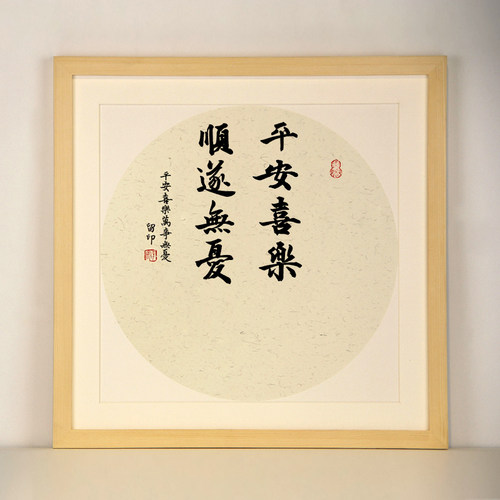 平安喜樂
順遂無憂
平安喜樂萬事無憂
留印